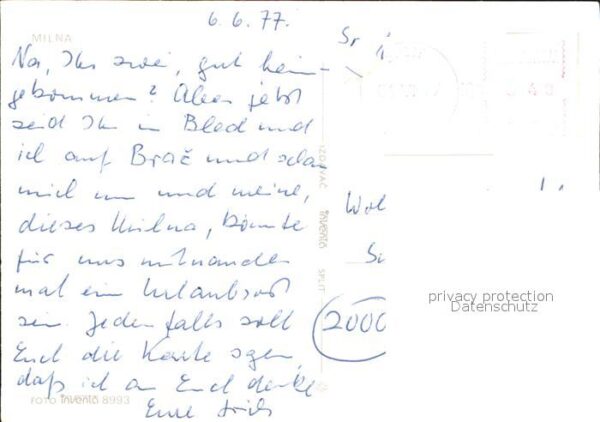 6. 6. 77.
MILNA
Na, Ihr zwei, gut heim-
gekommen? Aber jetzt
seid Ihr in Bled und
ich auf Brač und schau
mich um und meine,
dieses Milna, könnte
für uns miteinander
mal ein Urlaubsort
sein. Jedenfalls soll
Euch die Karte sagen
daß ich an Euch denke
Eure
FOTO Inventa 8993
IZDAVAČ
SPLIT
Sr
Wol
Si
2000
privacy protection
Datenschutz